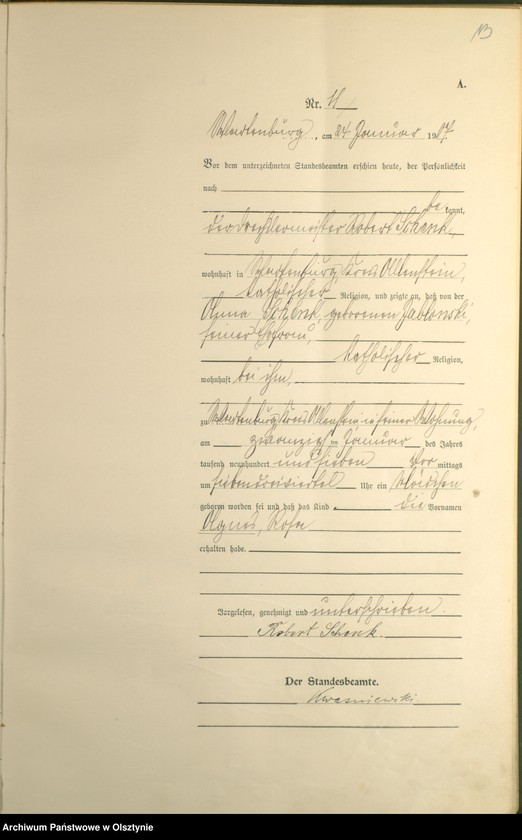 A.
Nr. 11
Wartenburg, am 24 Januar 1907.
Vor dem unterzeichneten Standesbeamten erschien heute, der Persönlichkeit
nach
be kannt,
der Drechslermeister Robert Schenk,
wohnhaft in Wartenburg, Kreis Allenstein,
katholischer Religion, und zeigte an, daß von der
Anna Schenk, geborenen Jablonski,
seiner Ehefrau,
katholischer Religion,
wohnhaft bei ihm,
zu Wartenburg Kreis Allenstein, in seiner Wohnung,
am zwanzigsten Januar des Jahres
tausend neunhundert und sieben Vor mittags
um sieben dreiviertel Uhr ein Mädchen
geboren worden sei und daß das Kind die Vornamen
Agnes, Rosa
erhalten habe.
Vorgelesen, genehmigt und unterschrieben.
Robert Schenk.
Der Standesbeamte.
Kwasniewski
Archiwum Państwowe w Olsztynie